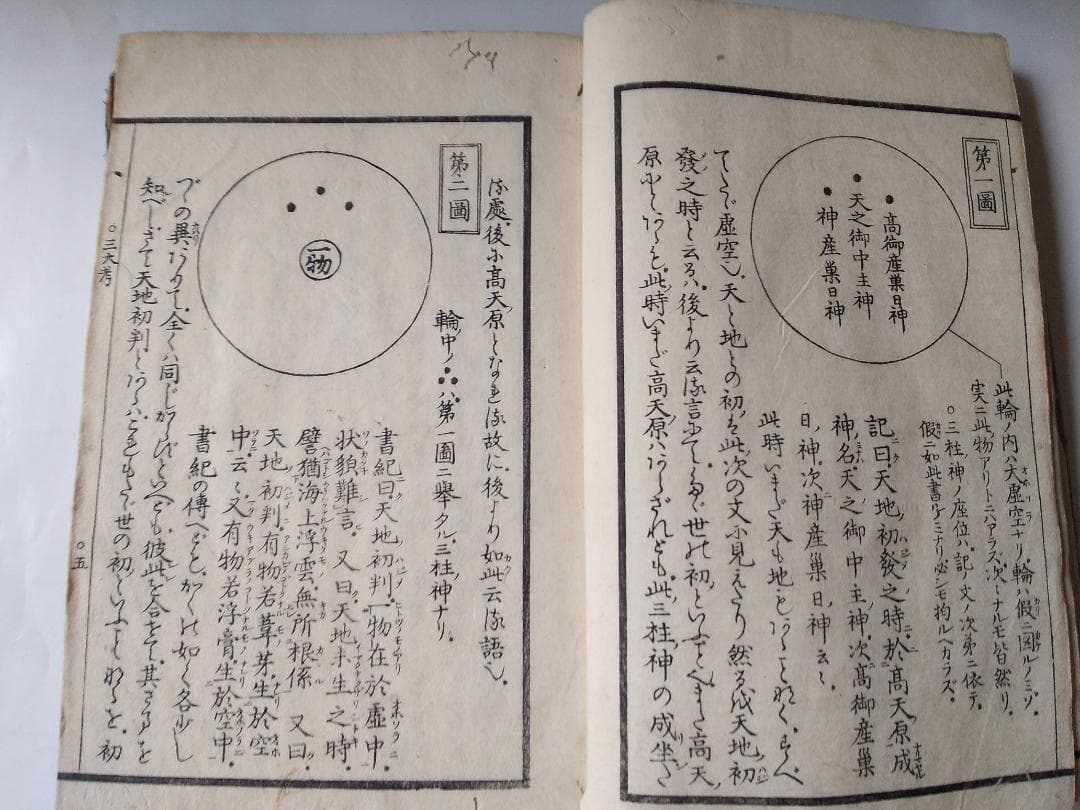 第一圖
高御産巣日神
天之御中主神
神産巣日神
此輪ノ内ハ大虚空ナリ輪ハ假ニ圖ルノミゾ
実ニ此物アリトニハアラズ次々ナルモ皆然リ
○三柱ノ神ノ座位ハ記ノ文ノ次第ニ依テ
假ニ如此書ルナリ必シモ拘ルベカラズ
記曰天地初發之時於高天原成
神名天之御中主神次高御産巣
日神次神産巣日神云々
此時いまだ天も地も
てたゞ虚空也天と地との初は此次の文に見えたり然るを天地初
發之時と云るは後より云る言にてたゞ世の初といふことへまた高天
原にとあるも此時いまだ高天原はあらざれども此三柱神の成坐る
る處後に高天原となれる故に後より如此云る語也
第二圖
輪ノ中ノ∴ハ第一圖ニ舉タル三柱神ナリ
一物
書紀曰天地初判一物在於虚中
状貌難言又曰天地未生之時
譬猶海上浮雲無所根係又曰
天地初判有物若葦芽生於空
中云々又有物若浮膏生於空中
書紀の傳へどもかくの如く各少し
づゝの異ありて全くは同じからずといへども彼此を合せて其さまを
知べしさて天地初判とあるはこれもたゞ世の初といふ初
○三大考
○五